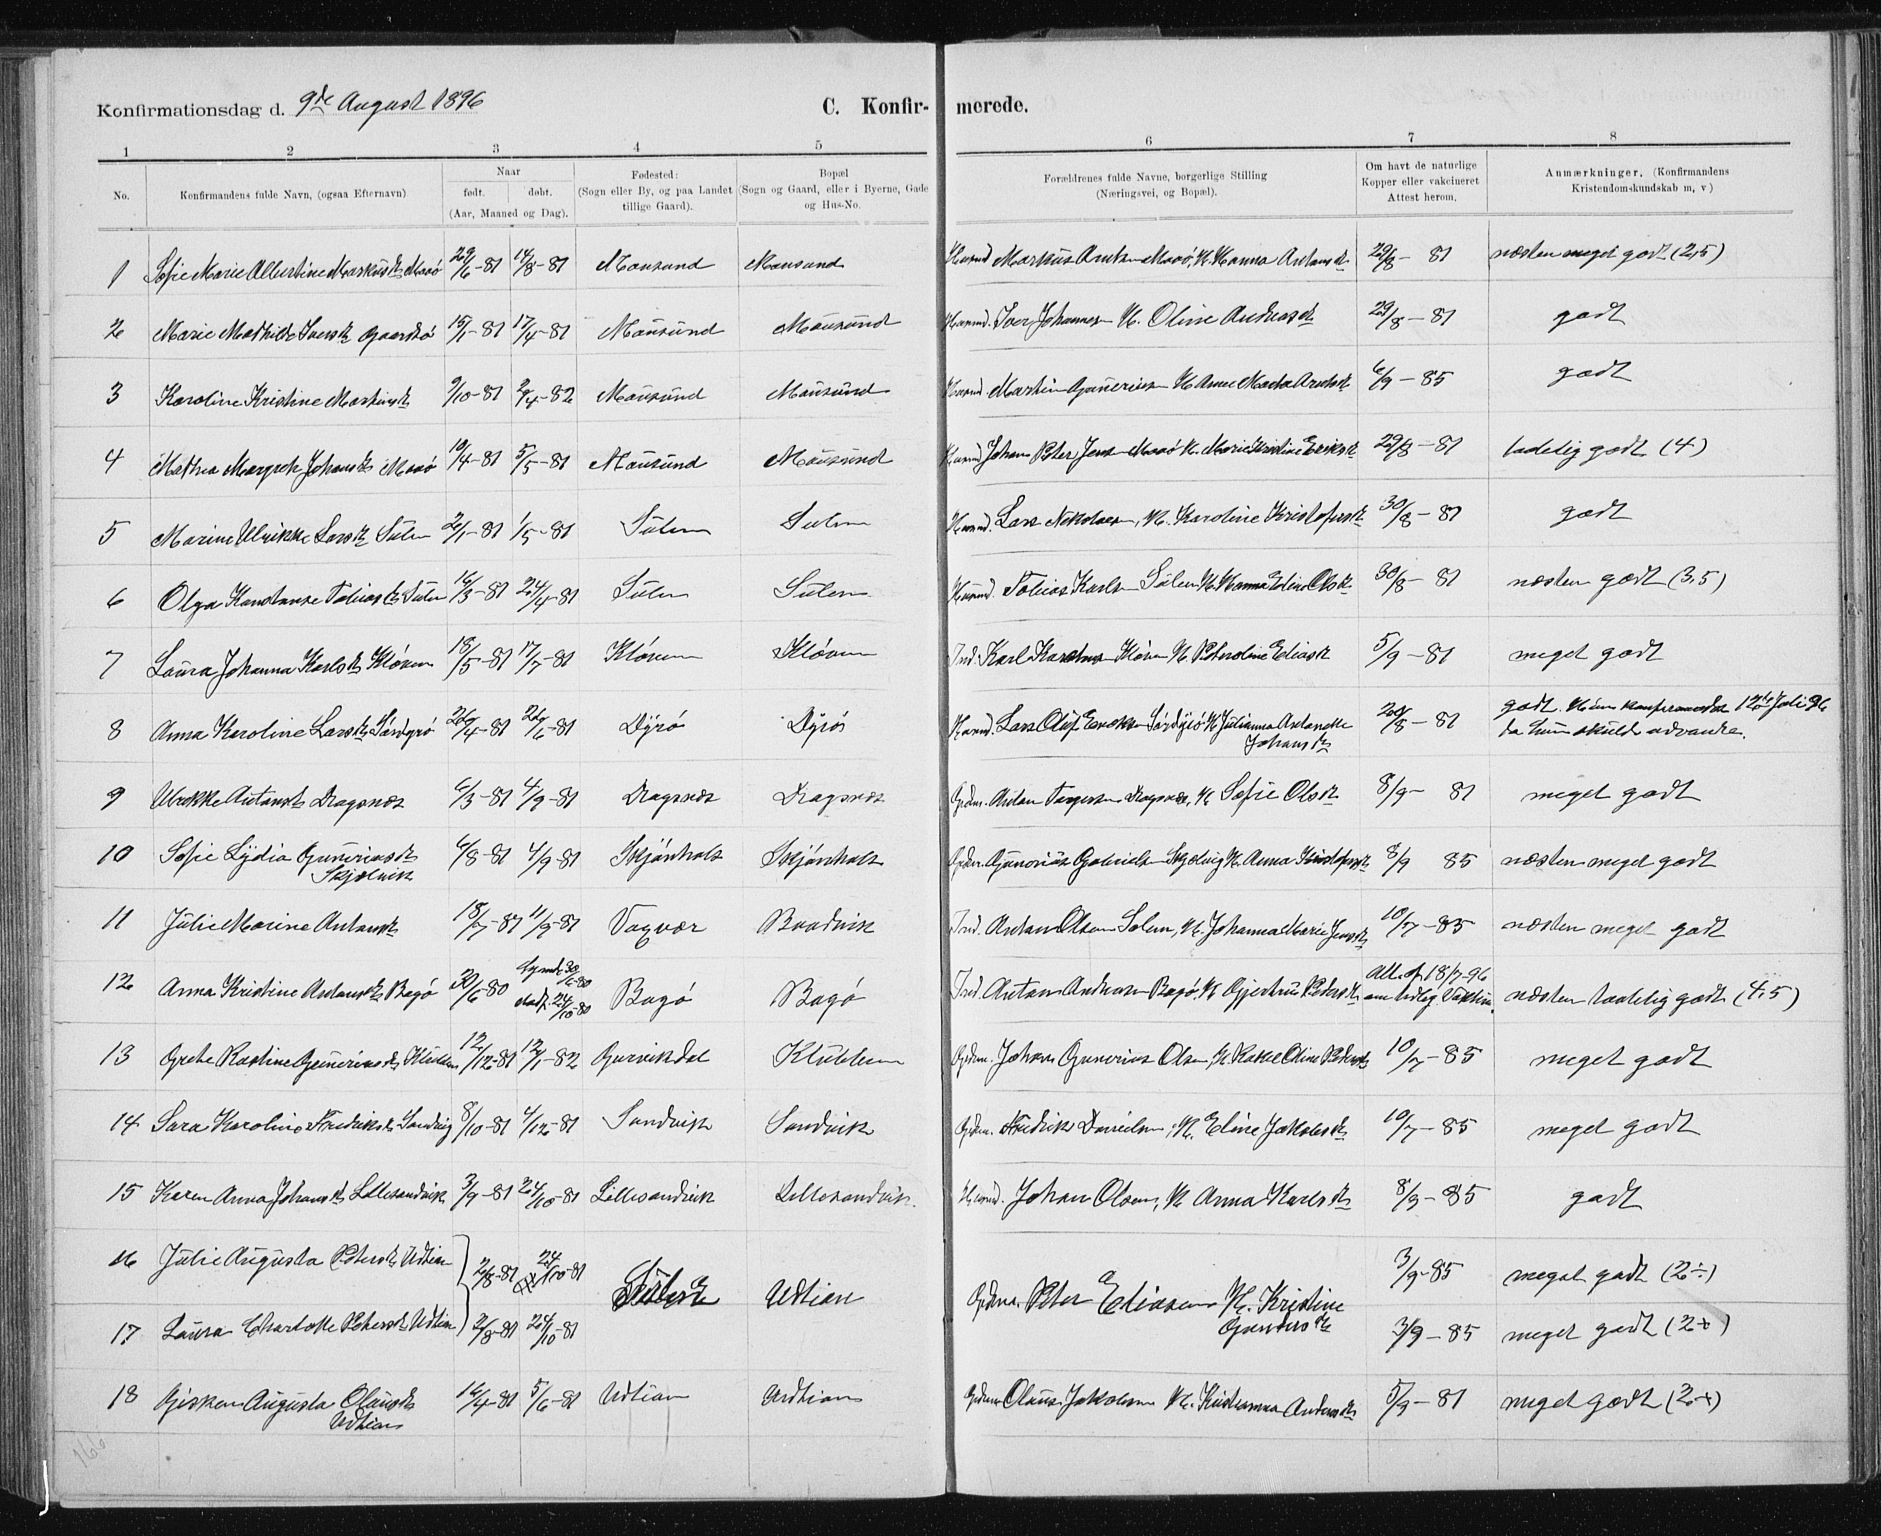 Konfirmationsdag d. 9de August 1896 C. Konfir- merede.
1 2 3 4 5 6 7 8
No. Konfirmandens fulde Navn, (ogsaa Efternavn) Naar født. døbt. (Aar, Maaned og Dag). Fødested: (Sogn eller By, og paa Landet tillige Gaard). Bopæl (Sogn og Gaard, eller i Byerne, Gade og Hus-No. Forældrenes fulde Navne, borgerlige Stilling (Næringsvei, og Bopæl). Om havt de naturlige Kopper eller vakcineret Attest herom. Anmærkninger. (Konfirmandens Kristendomskundskab m, v)
1 Sofie Marie Albertine Markusdtr Maaø 29/6-81 14/8-81 Mausund Mausund Markus Arntsen Maaø, H. Hanna Antonsdtr 29/8-81 næsten meget godt (2,5)
2 Marie Mathilde Iversdtr Gaardsø 15/1-81 17/4-81 Mausund Mausund Iver Johannesen H. Oline Andreasdtr 29/8-81 godt
3 Karoline Kristine Martinsdtr 9/10-81 2/4-82 Mausund Mausund Martin Guneriussen H. Anne Marta Arntsdtr 6/9-85 godt
4 Mathea Margrete Johansdtr Maaø 10/4-81 5/5-81 Mausund Mausund Johan Peter Jensen Maaø H. Marie Kristine Eriksdtr 29/8-81 tadelig godt (4)
5 Marine Ulrikke Larsdtr Sulen 2/1-81 1/5-81 Sulen Sulen Lars Nikolaisen, H. Karoline Kristofersdtr 30/8-81 godt
6 Olga Konstanse Tobiasdtr Sulen 16/3-81 24/4-81 Sulen Sulen Tobias Karlsen Sulen H. Hanna Edine Olsdtr 30/8-81 næsten godt (3,5)
7 Laura Johanna Karlsdtr Kløven 18/5-81 17/7-81 Kløven Kløven Ind. Karl Kløven H. Peteroline Eliasdtr 5/9-81 meget godt
8 Anna Karoline Larsdtr Sørdyrø 26/4-81 26/6-81 Dyrø Dyrø Lars Oluf Eriksen Sørdyrø H. Julianna Antonette Johansdtr 29/8-81 godt. Hun konfirmeredes 12te Juli 96 da hun skulde udvandre.
9 Ulrikke Antonsdtr Dragsnes 6/3-81 4/9-81 Dragsnes Dragsnes Gdm. Anton Dragsnes, H. Sofie Olsdtr 8/9-81 meget godt
10 Sofie Lydia Guneriusdtr Skjølvik 6/8-81 4/9-81 Skjønhals Skjønhals Gdm. Gunerius Gabrielsen H. Anna Kristofersdtr 8/9 85 næsten meget godt
11 Julie Marine Antonsdtr 18/7-81 11/9-81 Vagvær Baadvik Ind. Anton Olsen Solem, H. Johanna Marie Jensdtr 10/7-85 næsten meget godt
12 Anna Kristine Antonsdtr Bagø 30/6-80 30/6-80 24/10-80 Bagø Bagø Ind. Anton Andersen Bagø, H. Gjertrud Petersdtr Att. af 18/7-96 om lidlig Vakcine. næsten taalelig godt (4,5)
13 Grete Guneriusdtr Klubben 12/12-81 12/1-82 Gurvikdal Klubben Gdm. Johan Gunerius Olsen, H. Oline Pedersdtr 10/7-85 meget godt
14 Sara Karoline Fredriksdtr Sandvig 8/10-81 4/12-81 Sandvik Sandvik Gdm. Fredrik Danielsen, H. Eline Jakobsdtr 10/7-85 meget godt
15 Karen Anna Johansdtr Lillesandvik 3/9-81 24/10-81 Lillesandvik Lillesandvik. Johan Olsen, H. Anna Karlsdtr 8/9-85 godt
16 Julie Augusta Petersdtr Udtian 2/8-81 24/10-81 Udtian Gdm. Peter Eliasen H. Kristine Gundersdtr 3/9-85 meget godt (2÷)
17 Laura Charlotte Petersdtr Udtian 2/8-81 24/10-81 3/9-85 meget godt (2+)
18 Gjisken Augusta Olausdtr Udtian 16/4-81 5/6-81 Udtian Udtian Gdm. Olaus Jakobsen H. Kristianna Andersdtr 5/9-81 meget godt (2+)